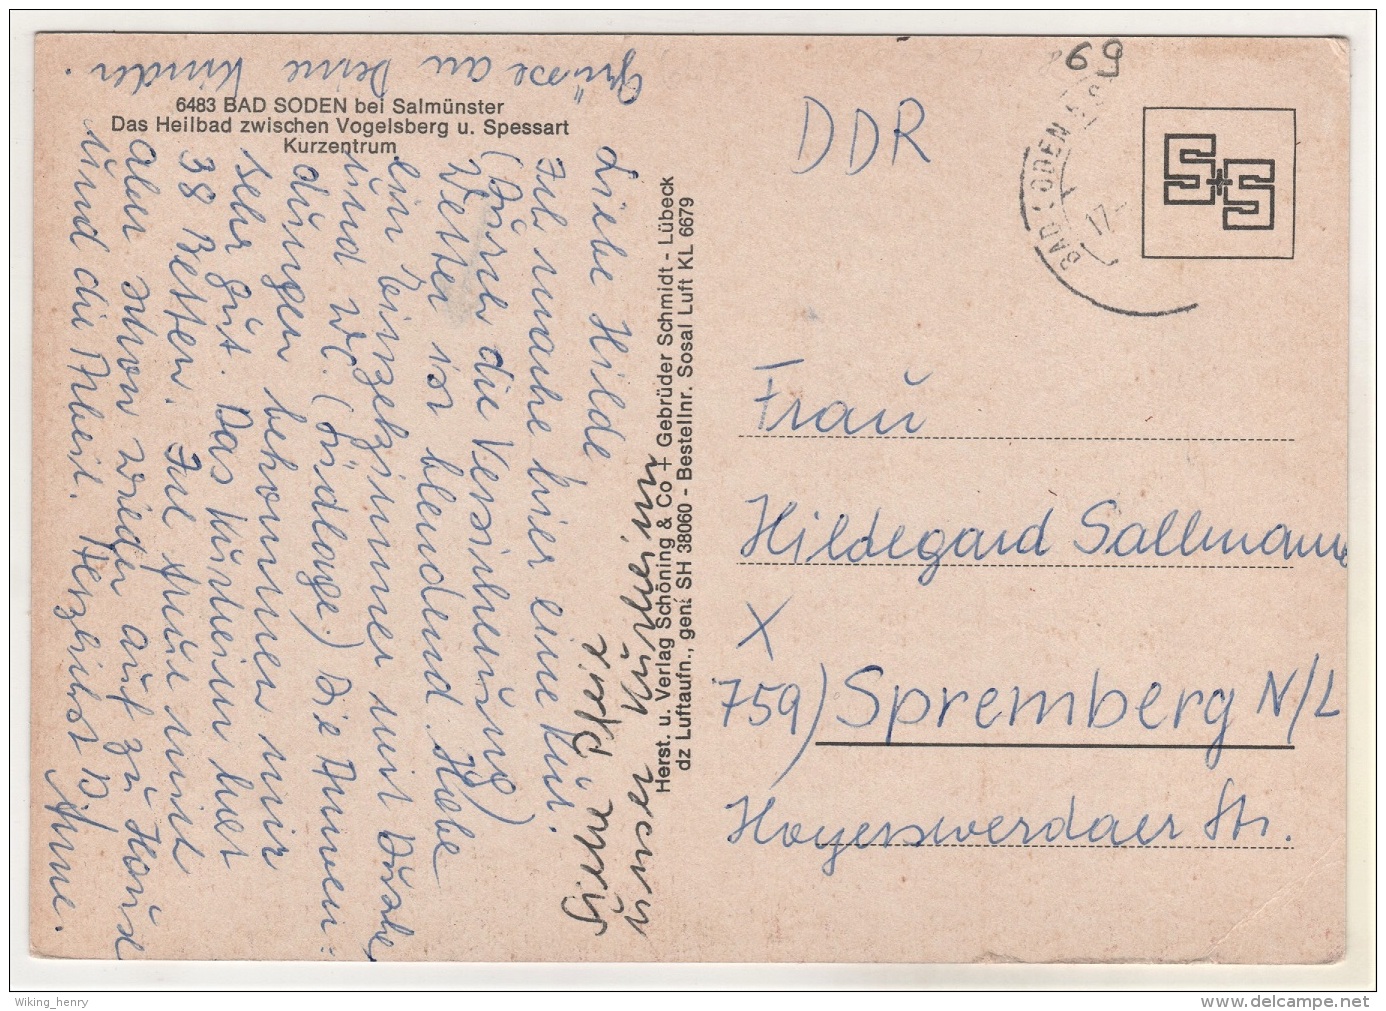 Grüsse an Deine Kinder.
6483 BAD SODEN bei Salmünster
Das Heilbad zwischen Vogelsberg u. Spessart
Kurzentrum
Liebe Hilde
Ich mache hier eine Kur.
(Durch die Versicherung)
Wetter ist blendend. Habe
ein Einzelzimmer mit Dusche
und WC. (Südlage) Die Anwen-
dungen bekommen mir
sehr gut. Das Kurheim hat
38 Betten. Ich freue mich
aber schon wieder auf zu Hause
und die Arbeit. Herzlichst D.
Anne.
Siehe Pfeile
unser Kurheim
Herst. u. Verlag Schöning & Co + Gebrüder Schmidt - Lübeck
dz Luftaufn., gen. SH 38060 - Bestellnr. Sosal Luft KL 6679
DDR
69
BAD SODEN
17
S+S
Frau
Hildegard Sallmann
X
759) Spremberg N/L
Hoyerswerdaer Str.
Wiking_henry
delcampe.net